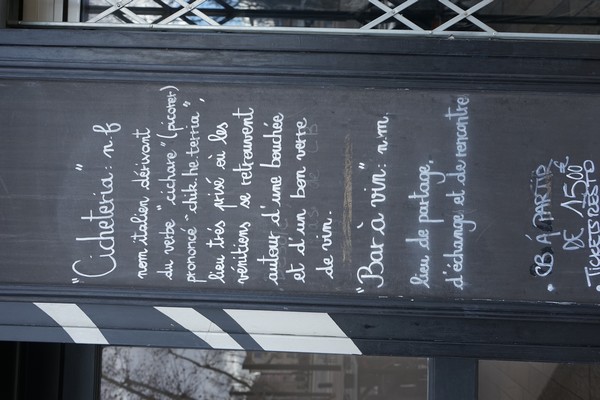 "Cicheteria": n.f
nom italien dérivant
du verbe "cichare" (picorer)
prononcé "chik.he.terria",
lieu trés privé où les
vénitiens se retrouvent
autour d'une bouchée
et d'un bon verre
de vin.
"Bar à vin": n.m.
lieu de partage,
d'échange et de rencontre
• CB Á PARTIR
DE 15,00 €
• TICKETS RESTO